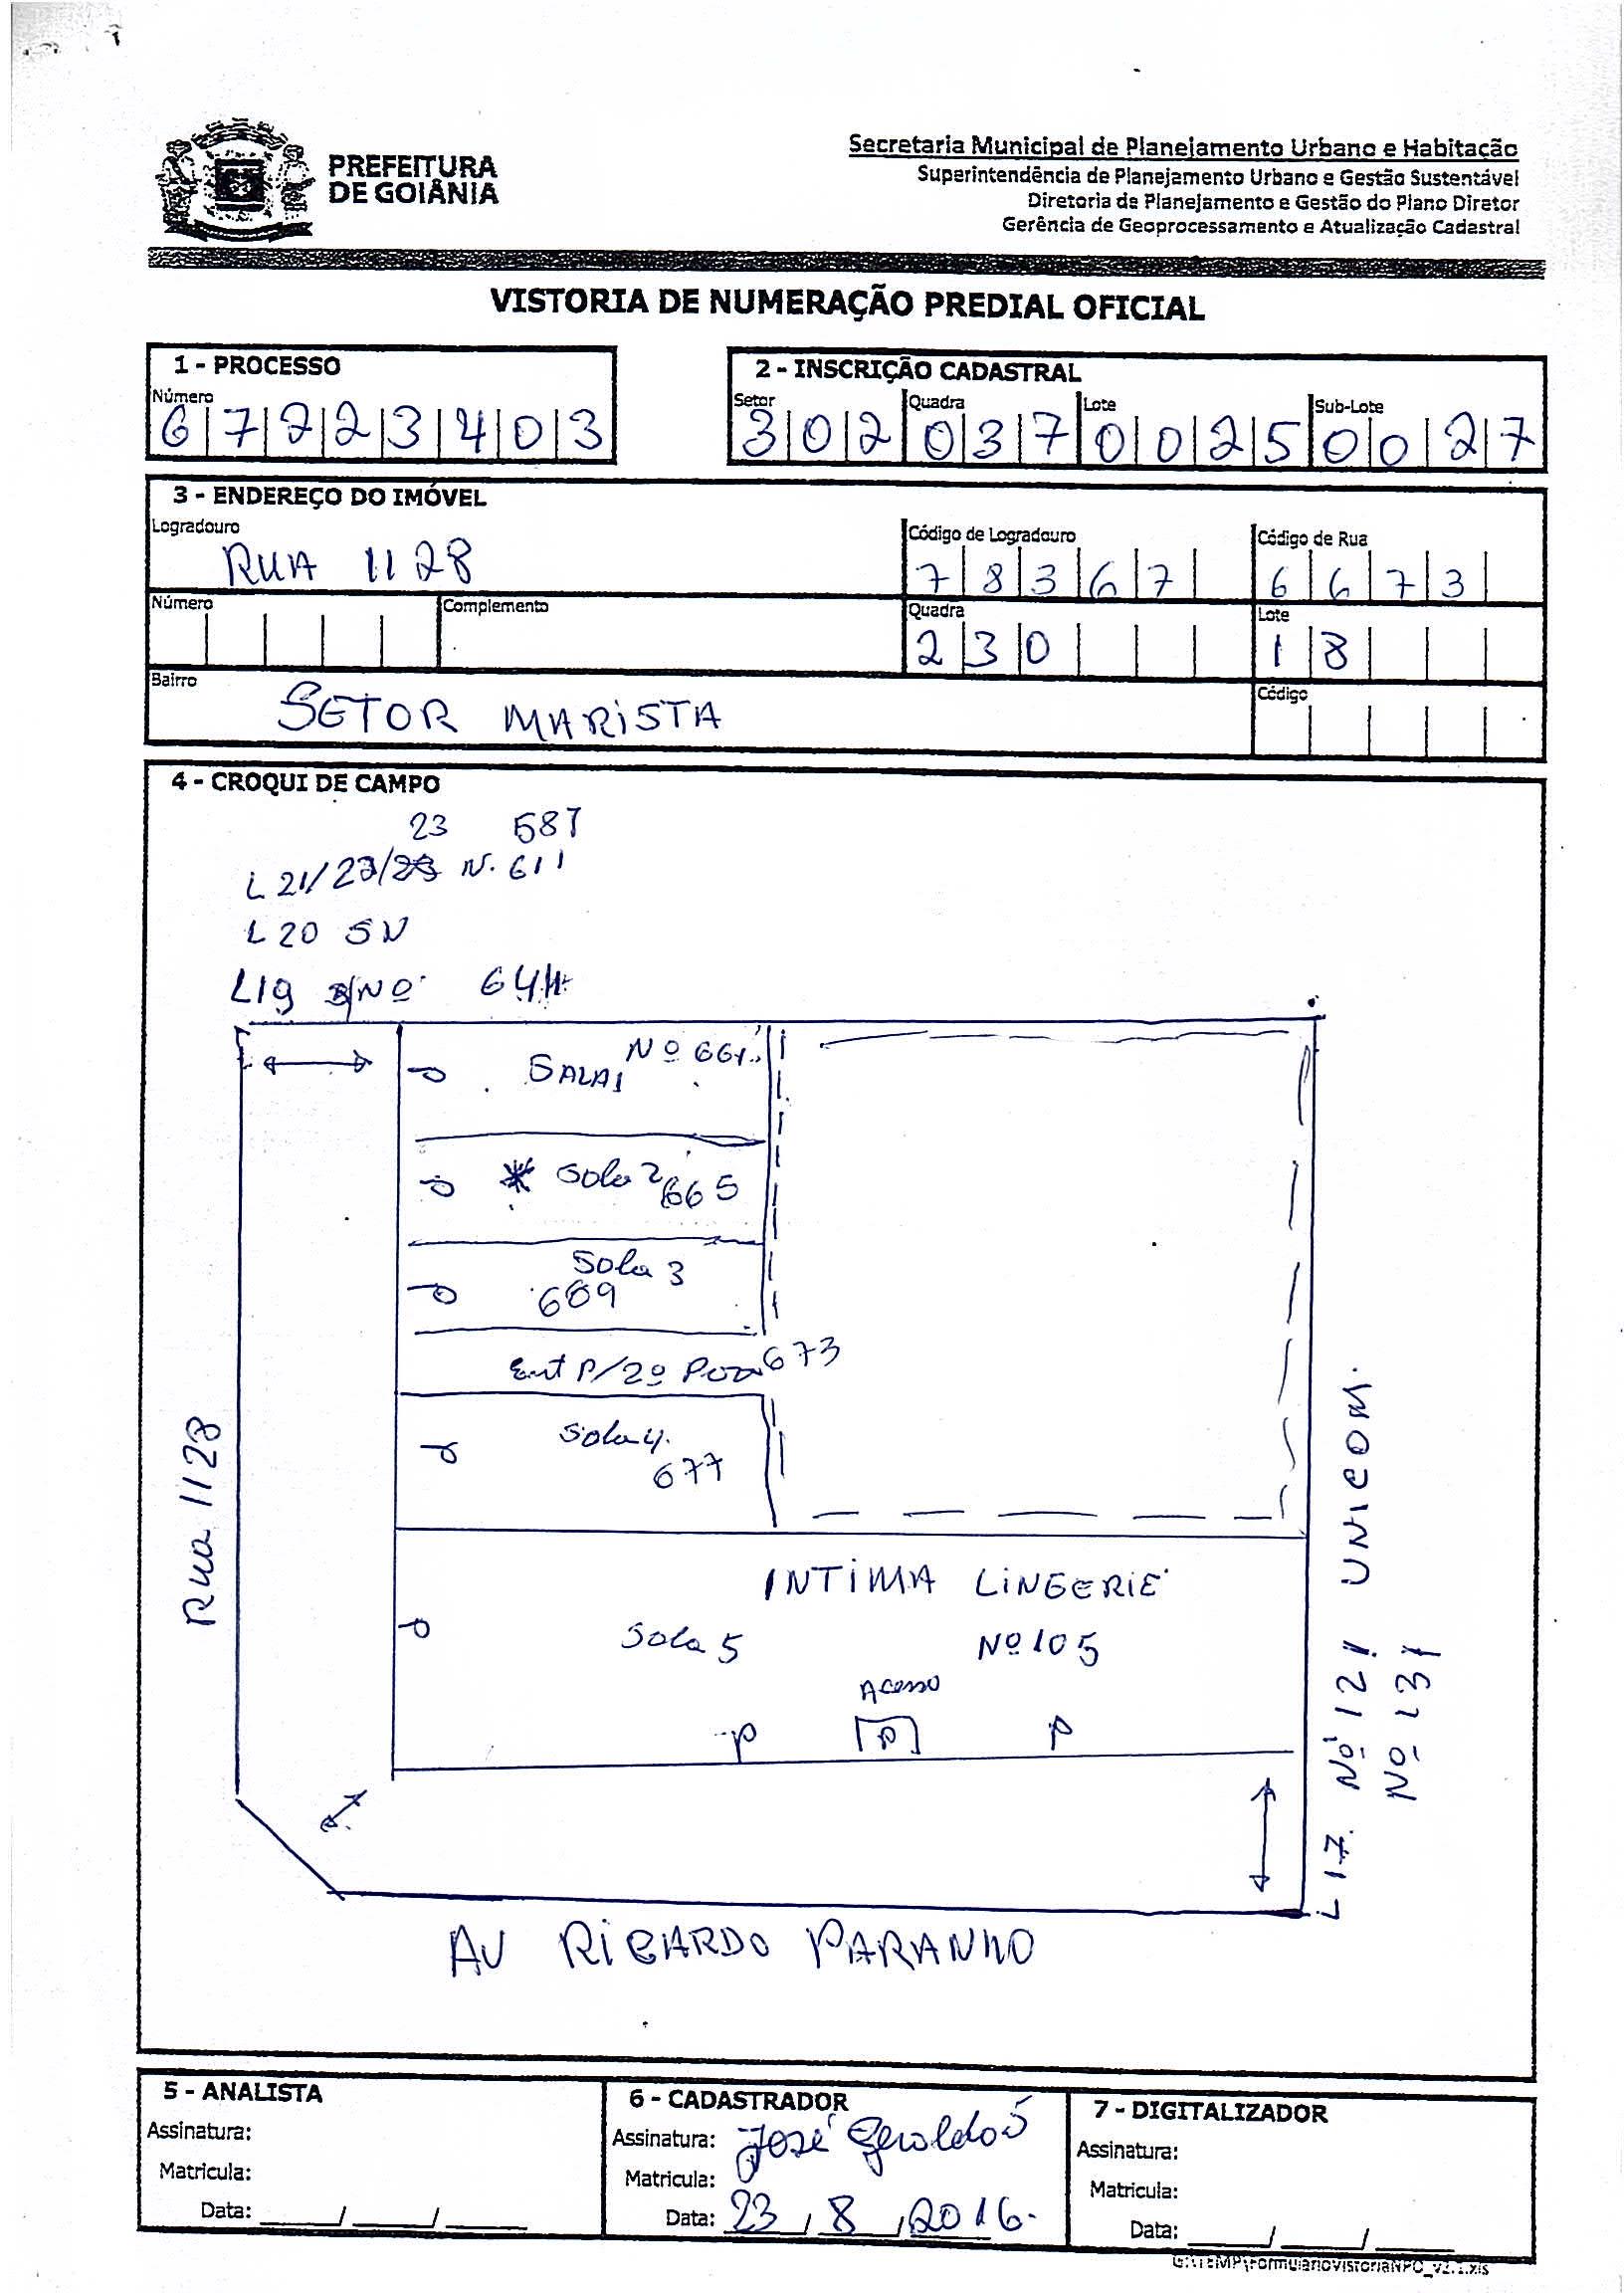 PREFEITURA
DE GOIÂNIA
Secretaria Municipal de Planejamento Urbano e Habitação
Superintendência de Planejamento Urbano e Gestão Sustentável
Diretoria de Planejamento e Gestão do Plano Diretor
Gerência de Geoprocessamento e Atualização Cadastral
VISTORIA DE NUMERAÇÃO PREDIAL OFICIAL
1 - PROCESSO
Número
6 7 2 2 3 4 0 3
2 - INSCRIÇÃO CADASTRAL
Setor Quadra Lote Sub-Lote
3 0 2 0 3 7 0 0 2 5 0 0 2 7
3 - ENDEREÇO DO IMÓVEL
Logradouro Código de Logradouro Código de Rua
RUA 1128 7 8 3 6 7 6 6 7 3
Número Complemento Quadra Lote
2 3 0 1 8
Bairro Código
SETOR MARISTA
4 - CROQUI DE CAMPO
23 587
L 21/22/23 N. 611
L 20 SN
L19 s/Nº 644
SALA1 Nº 661
Sala 2 665
Sala 3
669
Ent P/2º Pav 673
Sala 4
677
INTIMA LINGERIE
Sala 5 Nº 105
Acesso
P P P
Rua 1128
L 17. Nº 121 UNICOM.
Nº 131
AV RICARDO PARANHO
5 - ANALISTA
Assinatura:
Matricula:
Data: ____/____/____
6 - CADASTRADOR
Assinatura: José Geraldo S
Matricula:
Data: 23/8/2016.
7 - DIGITALIZADOR
Assinatura:
Matricula:
Data: ____/____/____